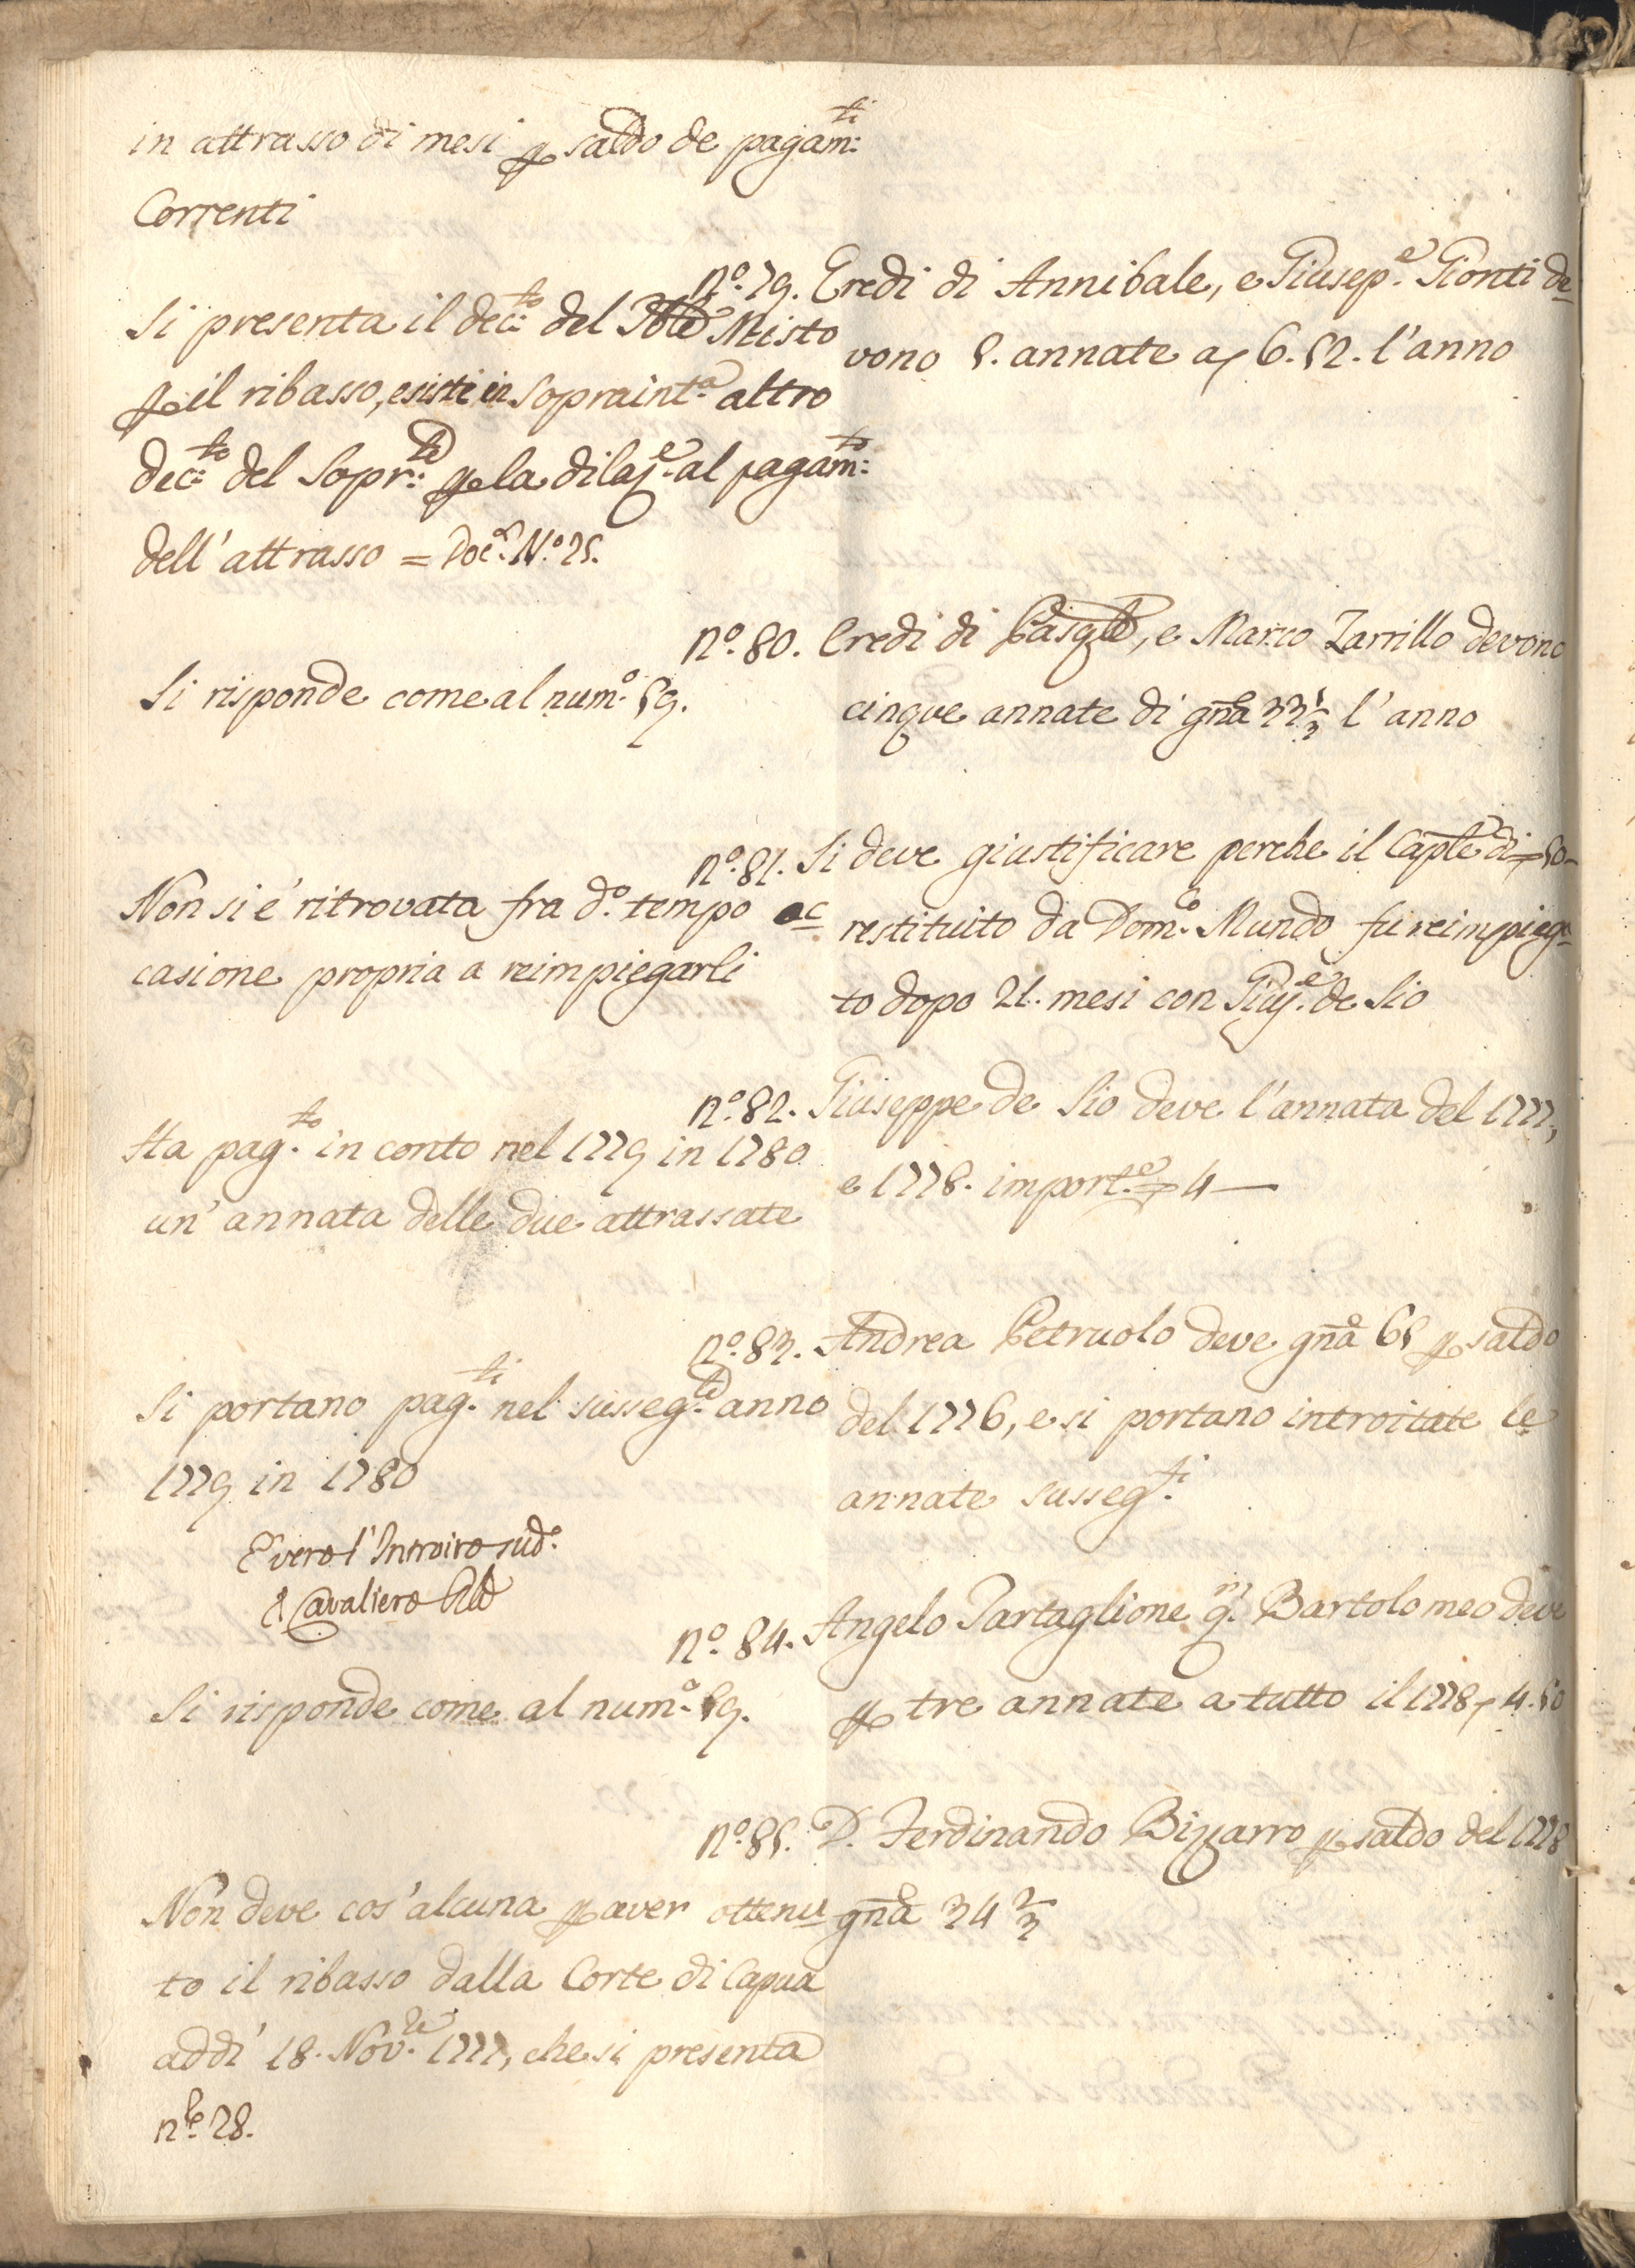 in attrasso di mesi p saldo de pagam:ti
Correnti
n.º 79. Eredi di Annibale, e Giusep.e Gionti de
vono 5. annate a 6.52. l'anno
Si presenta il dec:to del Tble Misto
p il ribasso, esiste in Sopraint.a altro
dec:to del Sopr:te p la dilaz.e al pagam:to
dell'attrasso = Doc.º N.º 25.
n.º 80. Eredi di Pasqle, e Marco Zarrillo devono
cinque annate di gna 33 1/3 l'anno
Si risponde come al num.º 59.
n.º 81. Si deve giustificare perche il Caple di 50-
restituito da Dom.co Mundo fu reimpiega
to dopo 21. mesi con Gius.e de Sio
Non si e' ritrovata fra d.º tempo oc
casione propria a reimpiegarli
n.º 82. Giuseppe de Sio deve l'annata del 1777,
e 1778. import.e 4—
Ha pag.to in conto nel 1779 in 1780
un' annata delle due attrassate
n.º 83. Andrea Petruolo deve gna 65 p saldo
del 1776, e si portano introitate le
annate susseg.ti
Si portano pag.ti nel susseg.te anno
1779 in 1780
E' vero l'Introito sud.º
Cavaliero
n.º 84. Angelo Tartaglione q.m Bartolomeo deve
p tre annate a tutto il 1778 4.50
Si risponde come al num.º 59.
n.º 85. D. Ferdinando Bizzarro p saldo del 1778
gna 34 2/3
Non deve cos'alcuna p aver ottenu
to il ribasso dalla Corte di Capua
addi' 18. Nov.re 1777, che si presenta
n.º 28.